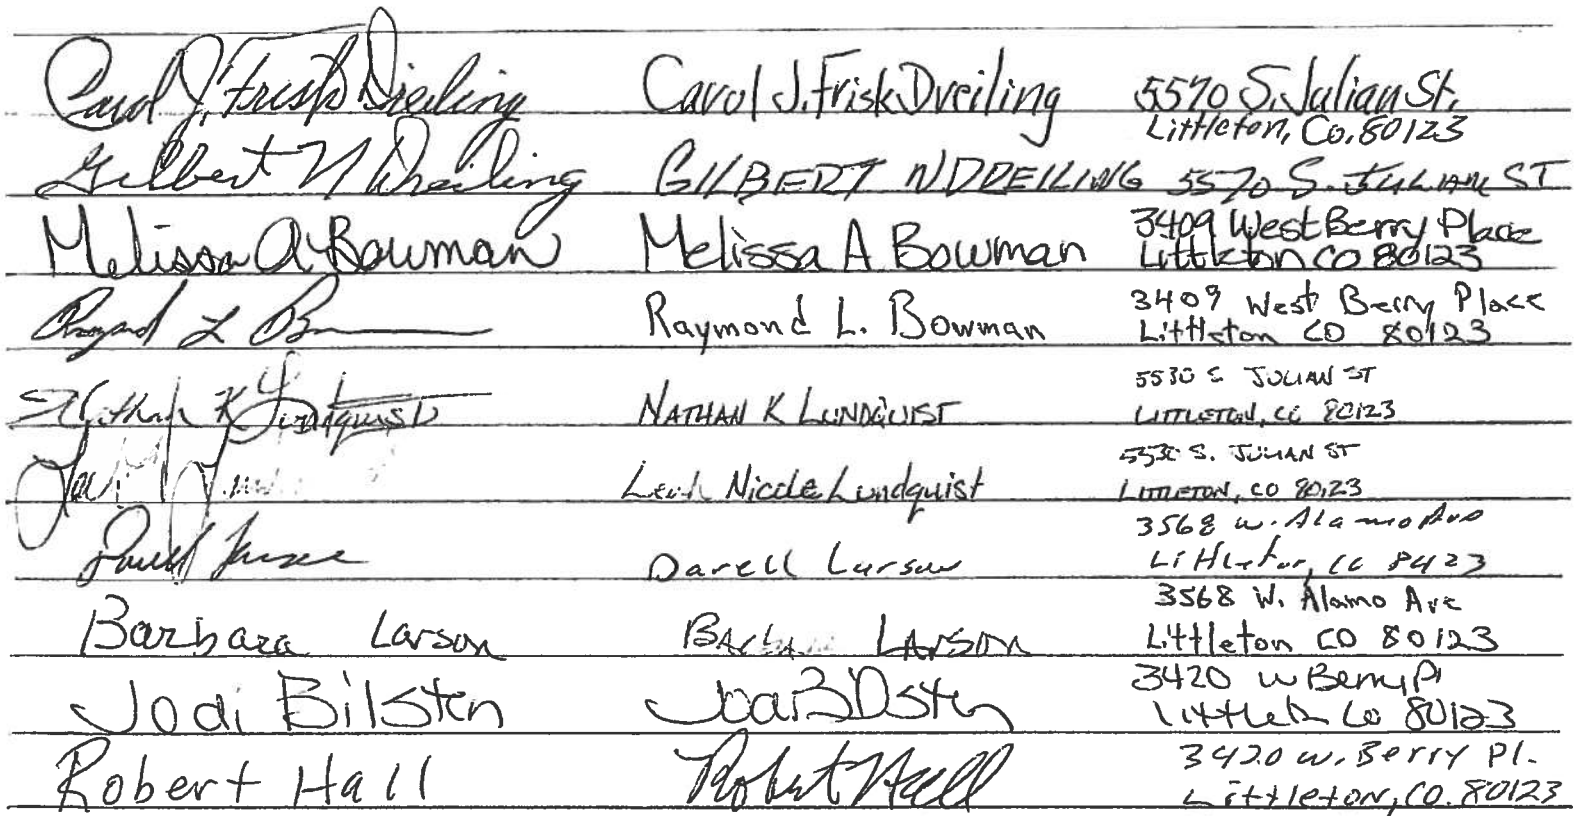 Carol J. Frisk Dreiling Carol J. Frisk Dreiling 5570 S. Julian St.
Littleton, Co. 80123
Gilbert N Dreiling GILBERT N DREILING 5570 S. JULIAN ST
Melissa A Bowman Melissa A Bowman 3409 West Berry Place
Littleton CO 80123
Raymond L Raymond L. Bowman 3409 West Berry Place
Littleton CO 80123
Nathan K Lundquist NATHAN K LUNDQUIST 5530 S JULIAN ST
LITTLETON, CO 80123
Leah Nicole Lundquist 5530 S. JULIAN ST
LITTLETON, CO 80123
Darell Larson 3568 W. Alamo Ave
Littleton, CO
Barbara Larson LARSON 3568 W. Alamo Ave
Littleton CO 80123
Jodi Bilsten Jodi Bilsten 3420 W Berry Pl
Littleton Co 80123
Robert Hall Robert Hall 3420 W. Berry Pl.
Littleton, CO. 80123